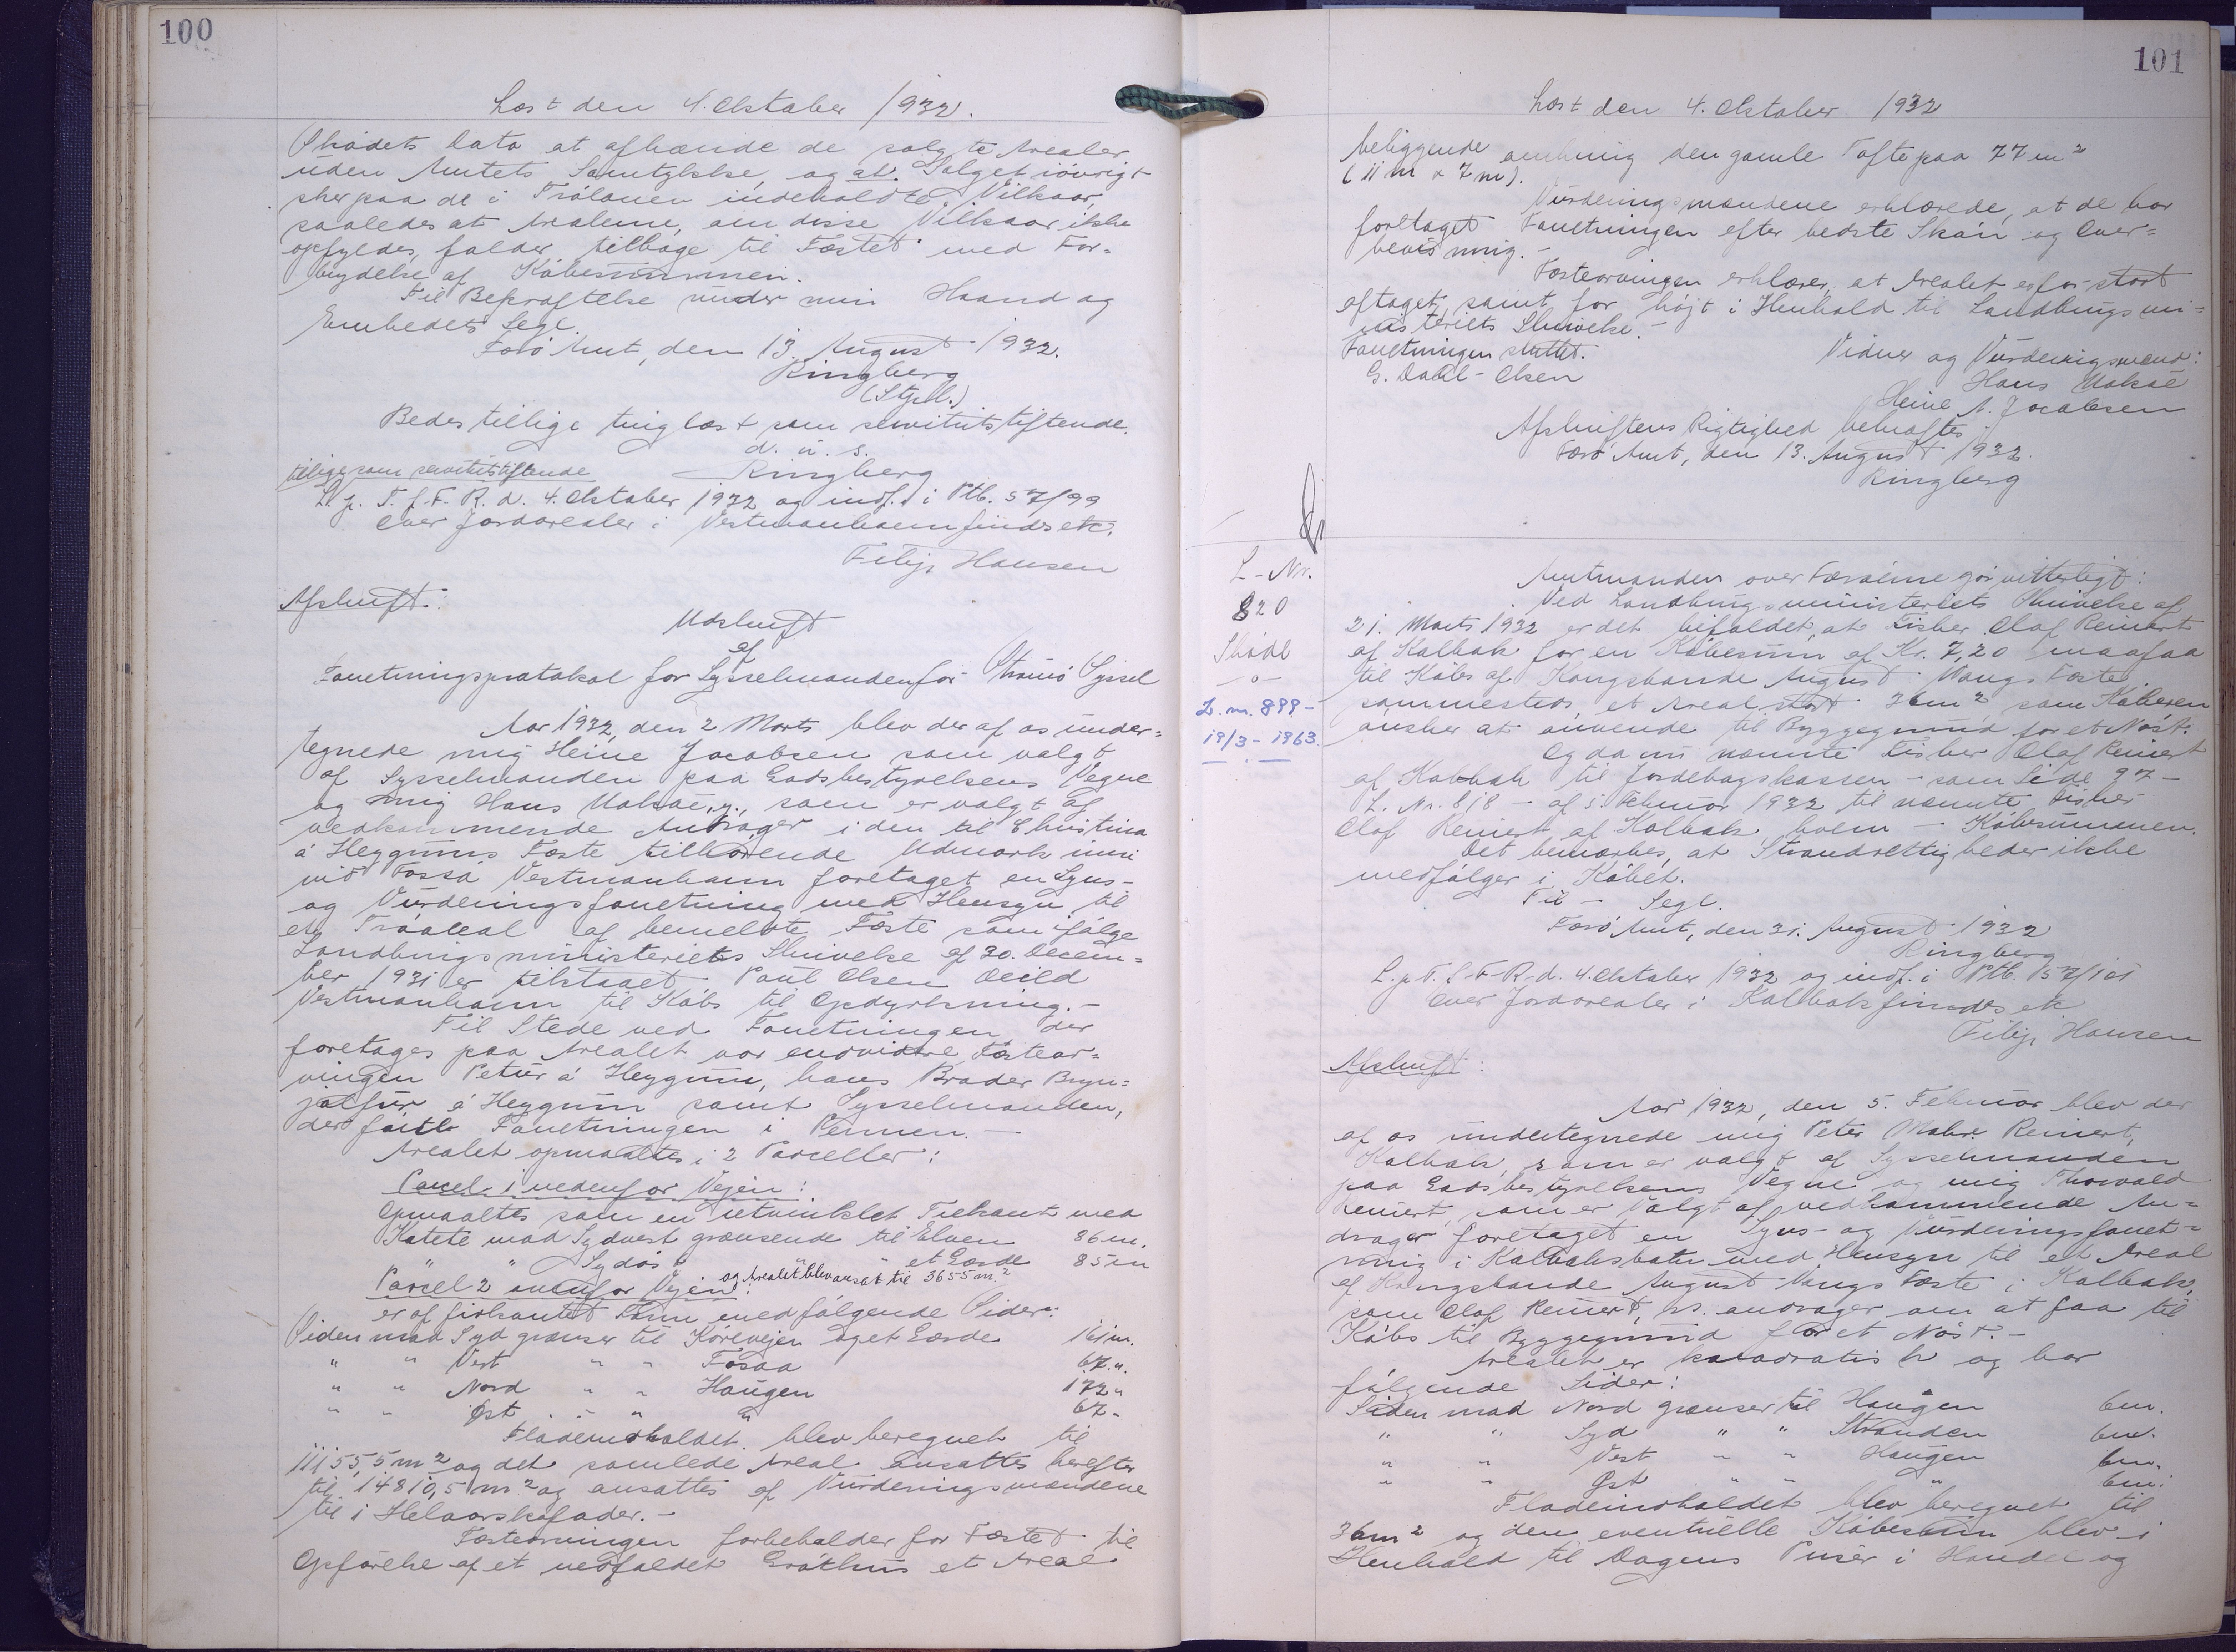 100
Læst den 4. Oktober 1932.
Skødets Dato at afhænde de solgte Arealer
uden Amtets Samtykke, og at Salget iøvrigt
sker paa de i Tróloven indeholdte Vilkaar,
saaledes at Arealerne, om disse Vilkaar ikke
opfyldes, falder tilbage til Fæstet med For-
brydelse af Købesummen.
Til Bekræftelse under min Haand og
Embedets Segl.
Færø Amt, den 13. August 1932.
Ringberg
(Stpl.)
Bedes tillige tinglæst som servitutstiftende.
d. u. s.
tillige som servitutstiftende Ringberg
L. p. T. f. F. R. d. 4. Oktober 1932 og indf. i Ptb. 57/99
Over Jordarealer i Vestmanhavn findes etc.
Filip Hansen
Afskrift:
Udskrift
af
Forretningsprotokol for Sysselmanden for Strømø Syssel
Aar 1932, den 2 Marts blev der af os under=
tegnede mig Heine Jacobsen som valgt
af Sysselmanden paa Godsbestyrelsens Vegne
og mig Hans Uaksaæ, y., som er valgt af
vedkommende Andrager i den til Christina
á Heygums Fæste tilhørende Udmark inni
við Fossá Vestmanhavn foretaget en Syns-
og Vurderingsforretning med Hensyn til
et Tróareal af bemeldte Fæste som ifølge
Landbrugsministeriets Skrivelse af 30. Decem=
ber 1931 er tilstaaet Poul Olsen Deild
Vestmanhavn til Købs til Opdyrkning.-
Til Stede ved Forretningen, der
foretages paa Arealet var endvidere Fæstear=
vingen Petur á Heygum, hans Broder Bryn=
jálfur á Heygum samt Sysselmanden,
der førte Forretningen i Pennen.-
Arealet opmaaltes i 2 Parceller:
Parcel 1 nedenfor Vejen:
Opmaaltes som en retvinklet Trekant med
Katete mod Sydvest grænsende til Elven 86 m.
" " Sydøst " " et Gærde 85 m
og Arealet blev ansat til 3655 m.²
Parcel 2 ovenfor Vejen:
er af firkantet Form med følgende Sider:
Siden mod Syd grænser til Kørevejen og et Gærde 161 m.
" " Vest " " Fossaa 67. "
" " Nord " " Haugen 172 "
" " Øst " " " 67 "
Fladeindholdet blev beregnet til
11155,5 m² og det samlede Areal ansattes herefter
til 14810,5 m² og ansattes af Vurderingsmændene
til 1 Helaarskofoder.-
Fæstearvingen forbeholder for Fæstet til
Opførelse af et nedfaldet Gróthus et Areal
101
Læst den 4. Oktober 1932
beliggende omkring den gamle Tofte paa 77 m²
(11 m x 7 m).
Vurderingsmændene erklærede, at de har
foretaget Forretningen efter bedste Skøn og Over=
bevisning.-
Fæstearvingen erklærer, at Arealet er for stort
aftaget, samt for højt i Henhold til Landbrugsmi=
nisteriets Skrivelse.-
Forretningen sluttet. Vidner og Vurderingsmænd:
G. Dahl-Olsen Hans Uaksaæ
Heine A. Jacobsen
Afskriftens Rigtighed bekræftes
Færø Amt, den 13. August 1932.
Ringberg
L-Nr.
820
Skøde
-o-
L.nr. 899-
19/3-1963.
Amtmanden over Færøerne gør vitterligt:
Ved Landbrugsministeriets Skrivelse af
21. Marts 1932 er det bifaldet, at Fisker Olaf Reinert
af Kalbak for en Købesum af Kr. 7,20 maa faa
til Købs af Kongsbonde August Vangs Fæste
sammesteds et Areal stort 36 m² som Køberen
ønsker at anvende til Byggegrund for et Nøst.
Og da nu nævnte Fisker Olaf Reinert
af Kalbak til Jordebogskassen - som Side 97 -
L. Nr. 818 - af 5. Februar 1932 til nævnte Fisker
Olaf Reinert af Kalbak hvem - Købesummen.
Det bemærkes, at Strandrettigheder ikke
medfølger i Købet.
Til - Segl.
Færø Amt, den 31. August 1932
Ringberg
L. p. T. f. F. R. d. 4. Oktober 1932 og indf. i Ptb. 57/101
Over Jordarealer i Kalbak findes etc
Filip Hansen
Afskrift:
Aar 1932, den 5. Februar blev der
af os undertegnede mig Peter Mohr Reinert,
Kalbak, som er valgt af Sysselmanden
paa Godsbestyrelsens Vegne og mig Thorvald
Reinert, som er valgt af vedkommende An=
drager foretaget en Syns- og Vurderingsforret=
ning i Kalbaksbotn med Hensyn til et Areal
af Kongsbonde August Vangs Fæste i Kalbak,
som Olaf Reinert, ss. andrager om at faa til
Købs til Byggegrund for et Nøst.-
Arealet er kvadratisk og har
følgende Sider:
Siden mod Nord grænser til Haugen 6m.
" " Syd " " Stranden 6m.
" " Vest " " Haugen 6m.
" " Øst " " " 6m.
Fladeindholdet blev beregnet til
36m² og den eventuelle Købesum blev i
Henhold til Dagens Priser i Handel og